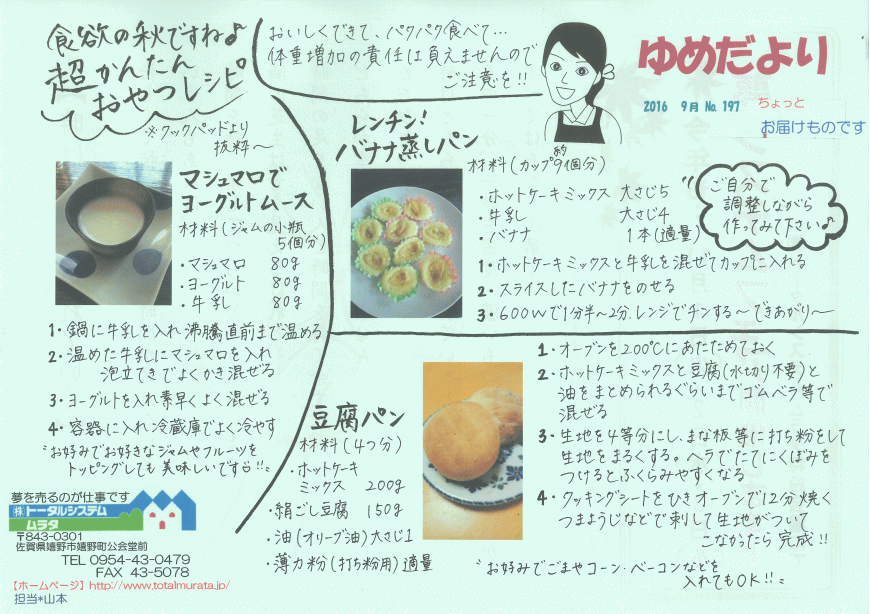 食欲の秋ですね♪
超かんたん
おやつレシピ
※クックパッドより
抜粋〜
おいしくできて、パクパク食べて…
体重増加の責任は負えませんので
ご注意を!!
ゆめだより
2016 9月 No. 197
ちょっと
お届けものです
マシュマロで
ヨーグルトムース
材料(ジャムの小瓶
5個分)
・マシュマロ 80g
・ヨーグルト 80g
・牛乳 80g
1・鍋に牛乳を入れ沸騰直前まで温める
2・温めた牛乳にマシュマロを入れ
泡立てきでよくかき混ぜる
3・ヨーグルトを入れ素早くよく混ぜる
4・容器に入れ冷蔵庫でよく冷やす
"お好みでお好きなジャムやフルーツを
トッピングしても美味しいです!!"
レンチン!
バナナ蒸しパン
材料(カップ約9個分)
・ホットケーキミックス 大さじ5
・牛乳 大さじ4
・バナナ 1本(適量)
"ご自分で
調整しながら
作ってみて下さい♪
1・ホットケーキミックスと牛乳を混ぜてカップに入れる
2・スライスしたバナナをのせる
3・600Wで1分半〜2分レンジでチンする〜できあがり〜
豆腐パン
材料(4つ分)
・ホットケーキ
ミックス 200g
・絹ごし豆腐 150g
・油(オリーブ油)大さじ1
・薄力粉(打ち粉用)適量
1・オーブンを200℃にあたためておく
2・ホットケーキミックスと豆腐(水切り不要)と
油をまとめられるぐらいまでゴムベラ等で
混ぜる
3・生地を4等分にし、まな板等に打ち粉をして
生地をまるくする。ヘラでたてにくぼみを
つけるとふくらみやすくなる
4・クッキングシートをひきオーブンで12分焼く
つまようじなどで刺して生地がついて
こなかったら完成!!
"お好みでごまやコーン・ベーコンなどを
入れてもOK!!"
夢を売るのが仕事です
㈱トータルシステム
ムラタ
〒843-0301
佐賀県嬉野市嬉野町公会堂前
TEL 0954-43-0479
FAX 43-5078
【ホームページ】http://www.totalmurata.jp/
担当*山本